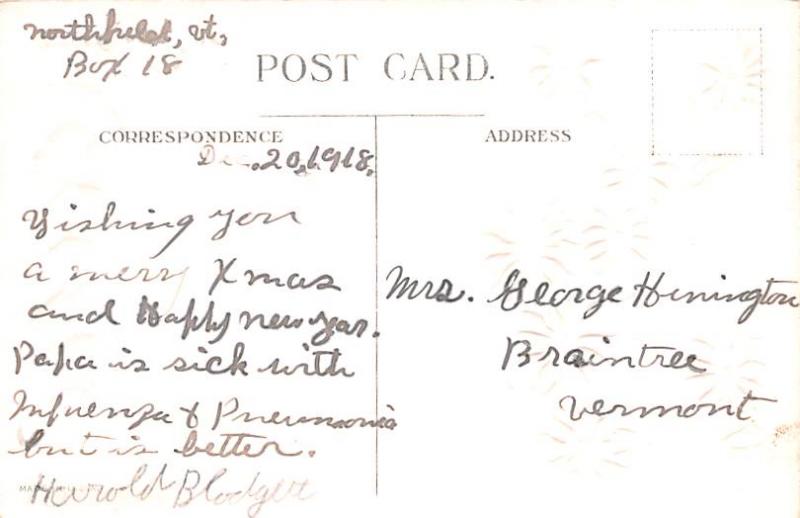 Northfield, Vt,
Box 18
POST CARD.
CORRESPONDENCE
Dec. 20, 1918.
Wishing you
a merry Xmas
and Happy new year.
Papa is sick with
Influenza & Pneumonia
but is better.
Harold Blodgett
ADDRESS
Mrs. George Hinington
Braintree
Vermont